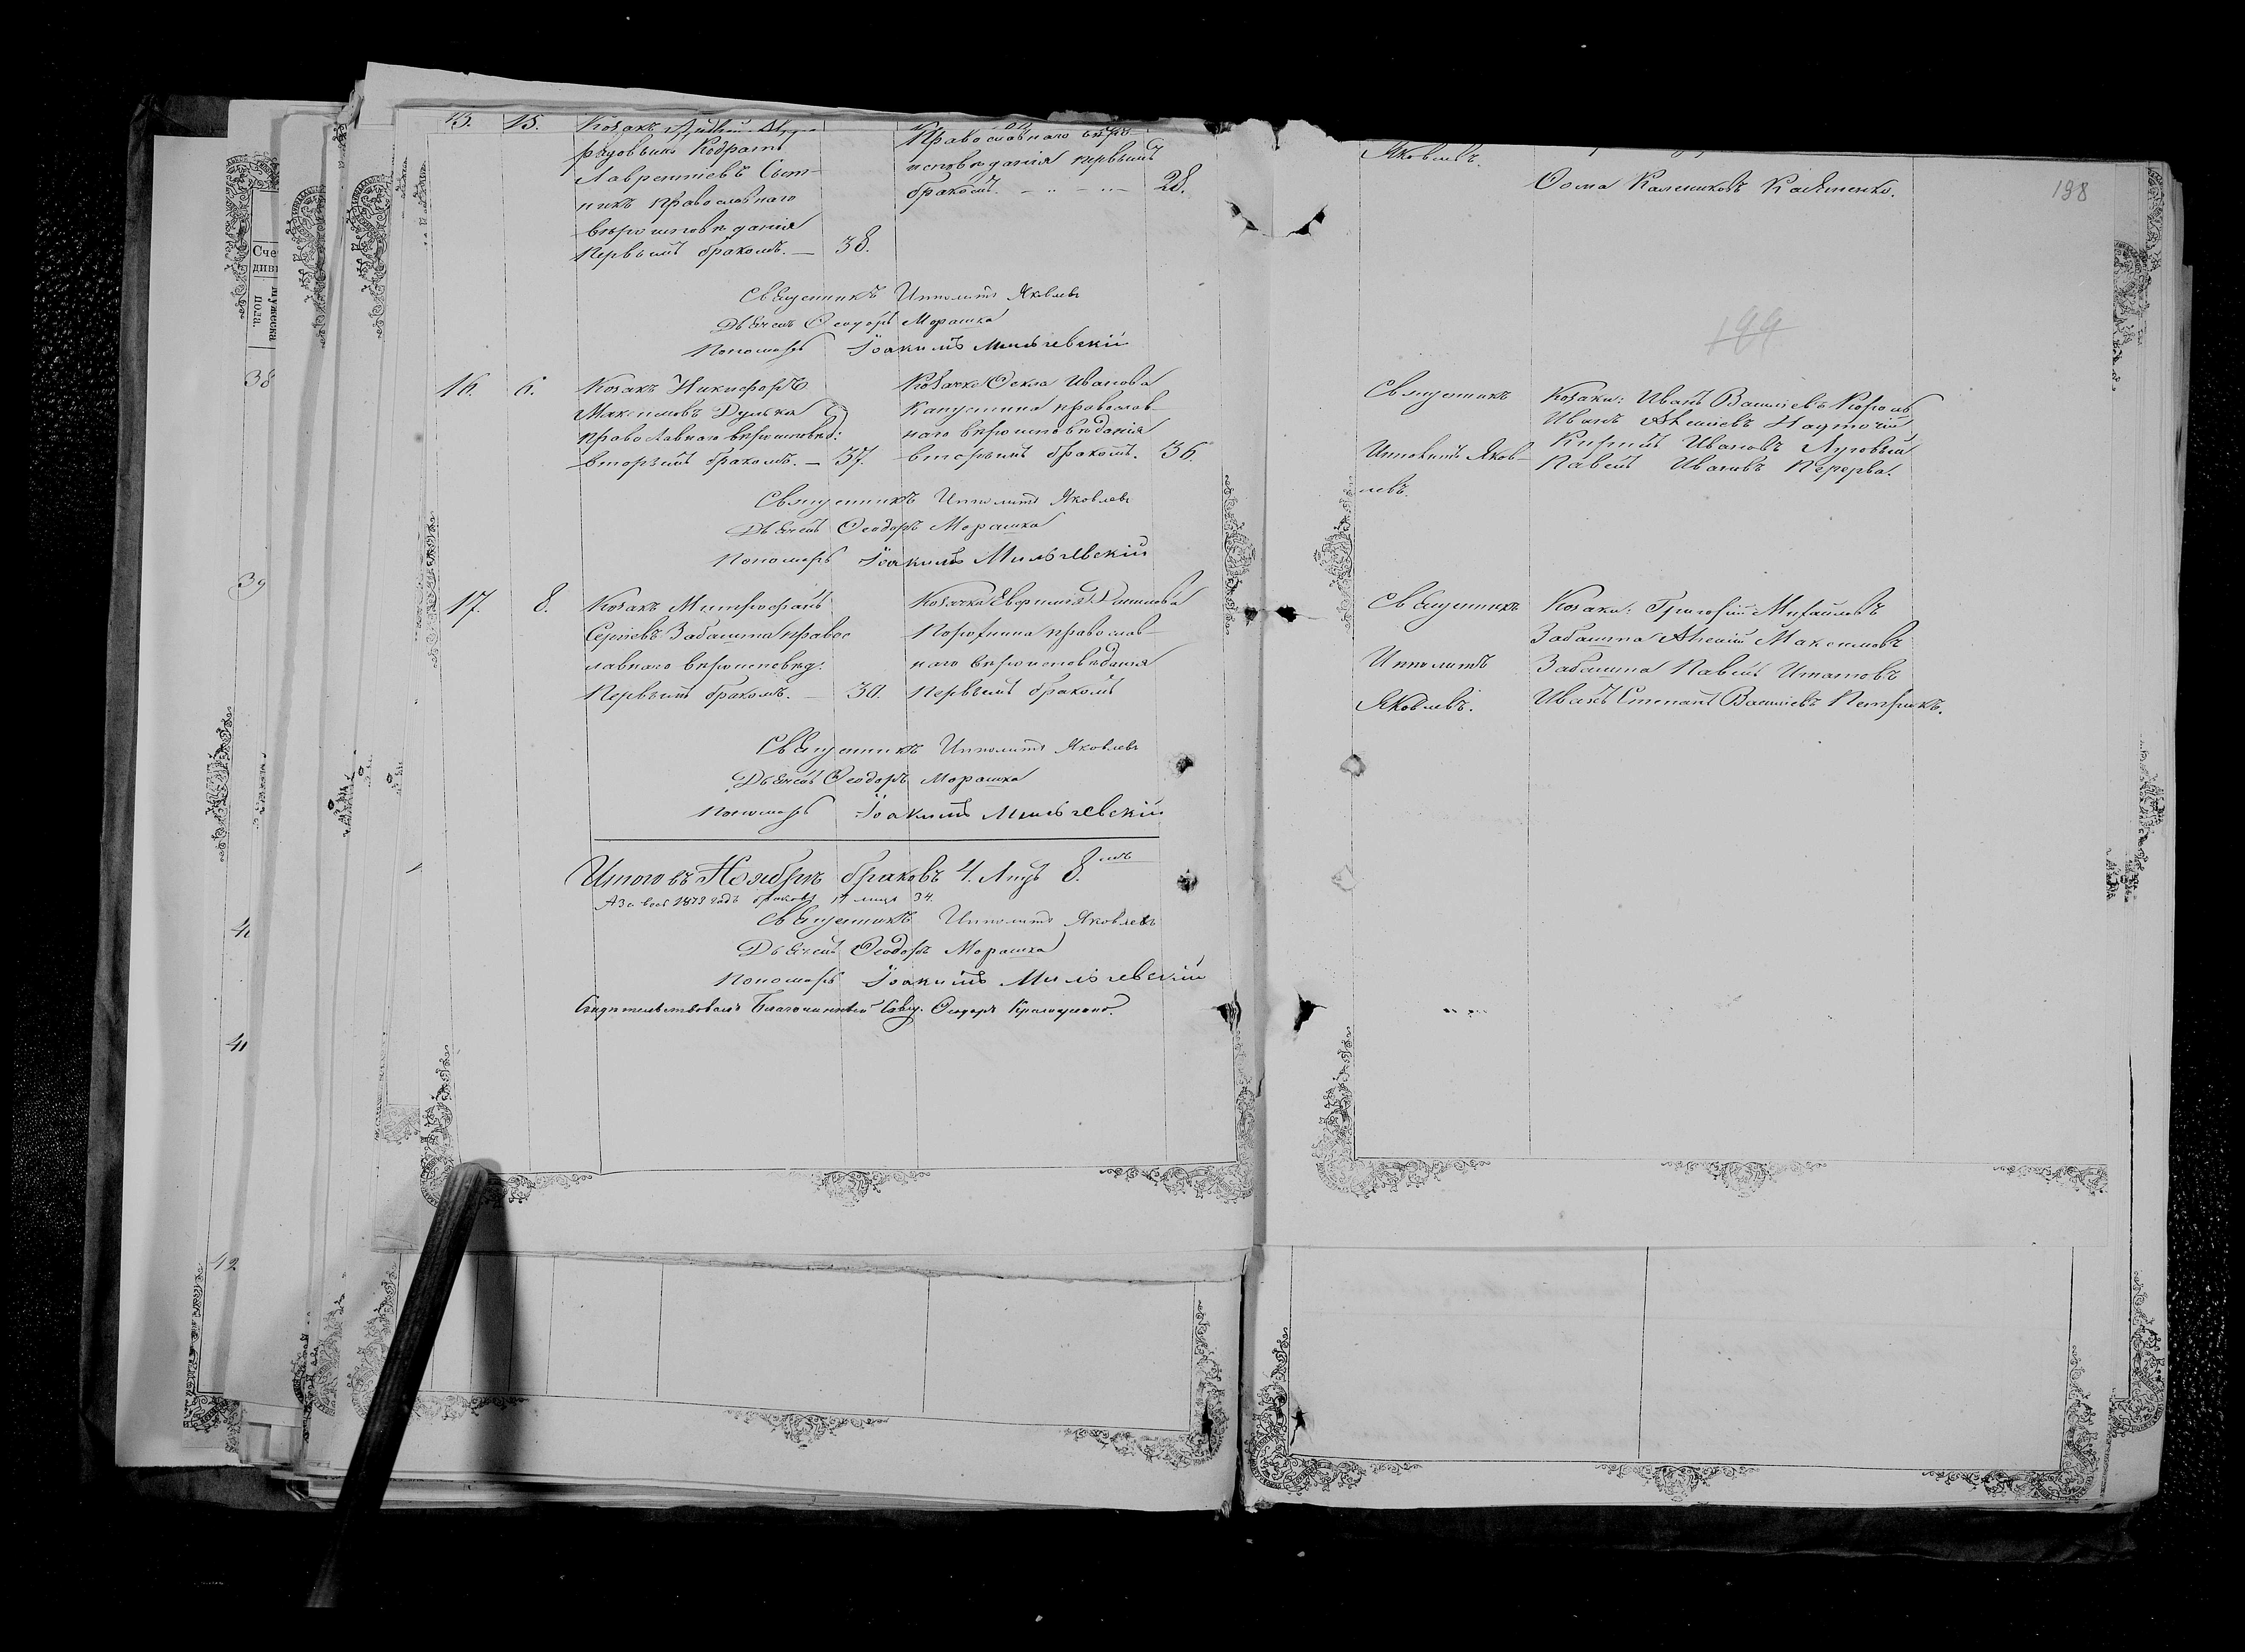 Сче
диви
мужеска
пола.
38
39
40
41
42
15. 15. Козакъ
рядовыхъ Кодратъ
Лаврентіевъ Сыт-
никъ православнаго
вѣроисповѣданія
первымъ бракомъ. — 38.
Православнаго вѣро-
исповѣданія первымъ
бракомъ. 28.
Священникъ Ипполитъ Яковлевъ
Дьячекъ Ѳеодоръ Морашка
Пономарь Іоакимъ Мильчевскій
16. 6. Козакъ Никифоръ
Максимовъ Дулька
православнаго вѣроисповѣд:
вторымъ бракомъ. — 37.
Козачка Ѳекла Иванова
Капустина православ-
наго вѣроисповѣданія
вторымъ бракомъ. 36.
Священникъ Ипполитъ Яковлевъ
Дьячекъ Ѳеодоръ Морашка
Пономарь Іоакимъ Мильчевскій
17. 8. Козакъ Митрофанъ
Сергіевъ Забашта правос
лавнаго вѣроисповѣд:
первымъ бракомъ. — 30.
Козачка Евфимія
православ-
наго вѣроисповѣданія
первымъ бракомъ
Священникъ Ипполитъ Яковлевъ
Дьячекъ Ѳеодоръ Морашка
Пономарь Іоакимъ Мильчевскій
Итого въ Ноябрѣ браковъ 4. Лицъ 8.
А за весь 1873 годъ браковъ 17 лицъ 34.
Священникъ Ипполитъ Яковлевъ
Дьячекъ Ѳеодоръ Морашка
Пономарь Іоакимъ Мильчевскій
Свидѣтельствовалъ Благочинный Свящ. Ѳеодоръ
198
Яковлевъ.
Ѳома Калениковъ
199
Священникъ
Ипполитъ Яков-
левъ.
Козаки: Иванъ Васильевъ Король
Иванъ Алексіевъ Надточій
Кирилъ Ивановъ Луговый
Павелъ Ивановъ Перерва.
Священникъ
Ипполитъ
Яковлевъ.
Козаки: Григорій Михайловъ
Забашта Алексій Максимовъ
Забашта Павелъ Игнатовъ
Иванъ Степанъ Васильевъ Петрикъ.